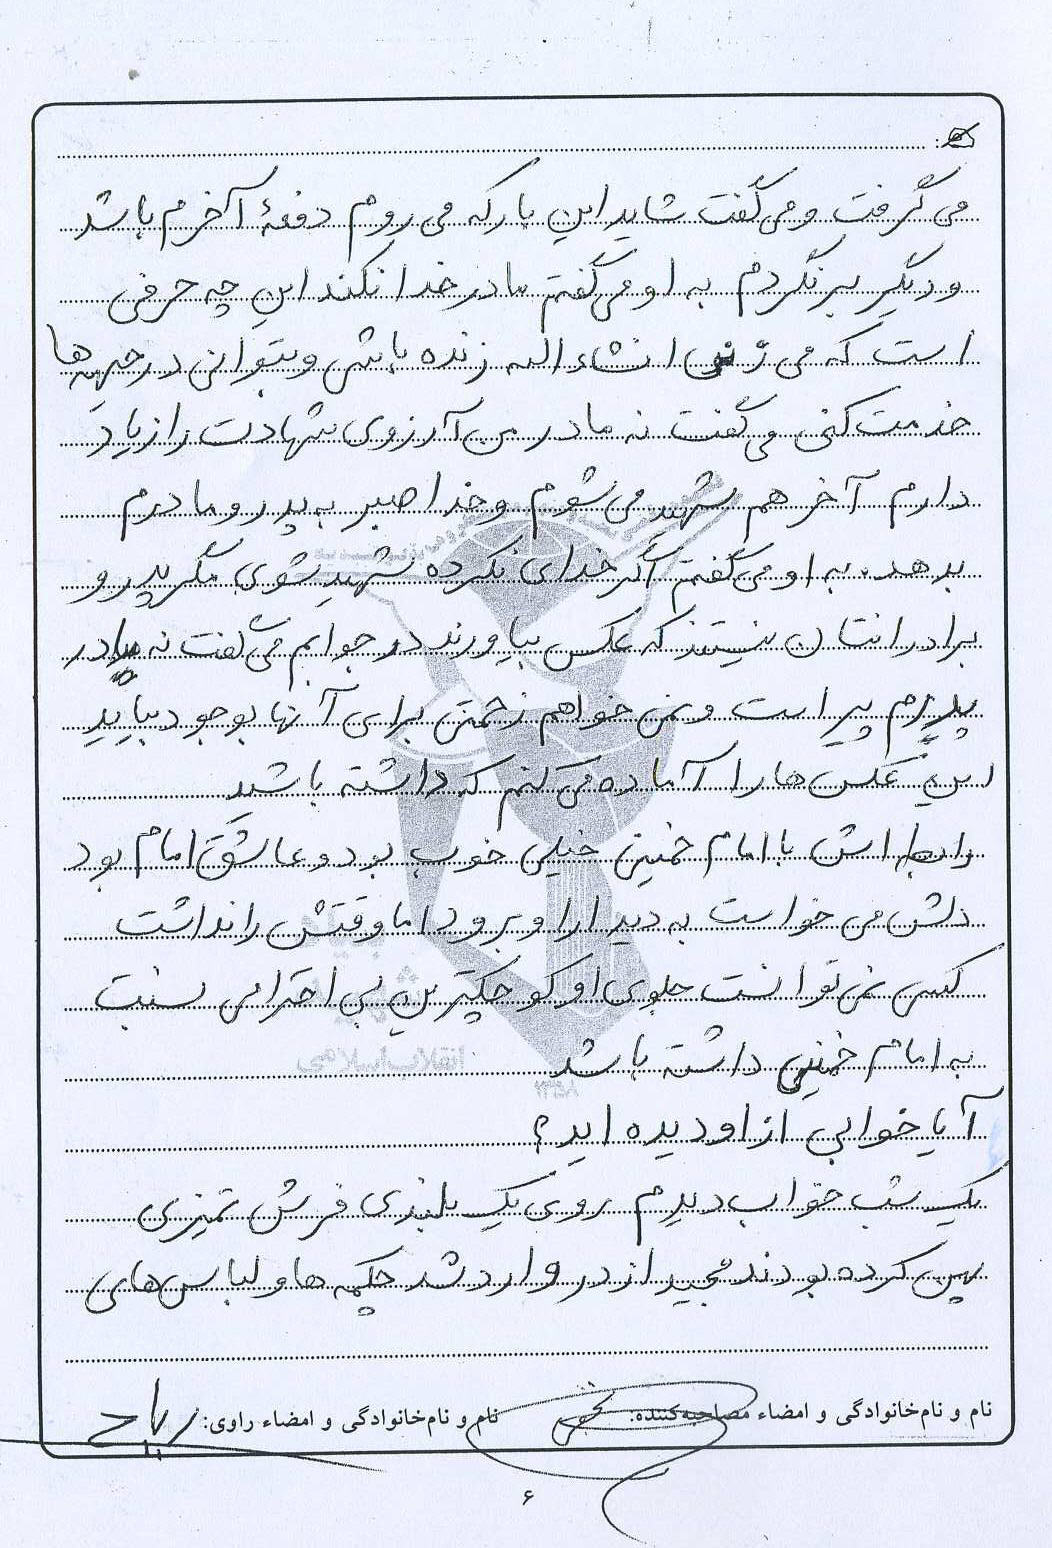 می گرفت و می گفت شاید این بار که می روم دفعهٔ آخرم باشد
و دیگر برنگردم به او می گفتم مادر خدا نکند این چه حرفی
است که می زنی انشاء الله زنده باشی و بتوانی در جبهه ها
خدمت کنی می گفت نه مادر من آرزوی شهادت را زیاد
دارم آخر هم شهید می شوم و خدا صبر به پدر و مادرم
بدهد. به او می گفتم اگر خدای نکرده شهید شوی مگر پدر و
برادرانتان نیستند که عکس بیاورند در جوابم می گفت نه مادر
پدرم پیر است و نمی خواهم زحمتی برای آنها بوجود بیاید
این عکس ها را آماده می کنم که داشته باشید
رابطه اش با امام خمینی خیلی خوب بود و عاشق امام بود
دلش می خواست به دیدار او برود اما وقتش را نداشت
کسی نمی توانست جلوی او کوچکترین بی احترامی نسبت
به امام خمینی داشته باشد
آیا خوابی از او دیده اید؟
یک شب خواب دیدم روی یک بلندی فرش تمیزی
پهن کرده بودند مجید از در وارد شد چکمه ها و لباس های
نام و نام‌خانوادگی و امضاء مصاحبه‌کننده:
نام و نام‌خانوادگی و امضاء راوی:
۶
انقلاب اسلامی